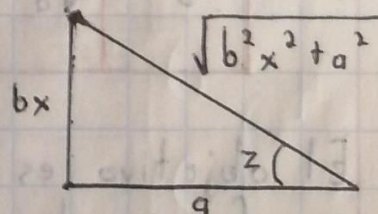 √(b²x² + a²)
bx
z
a